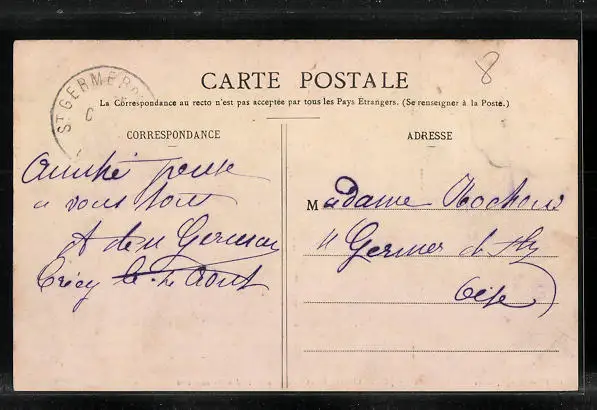 8
CARTE POSTALE
La Correspondance au recto n'est pas acceptée par tous les Pays Etrangers. (Se renseigner à la Poste.)
ST GERMER
C
CORRESPONDANCE
ADRESSE
Amitié
a vous tous
Crécy le Aout
Madame
St Germer d Fly
Oise